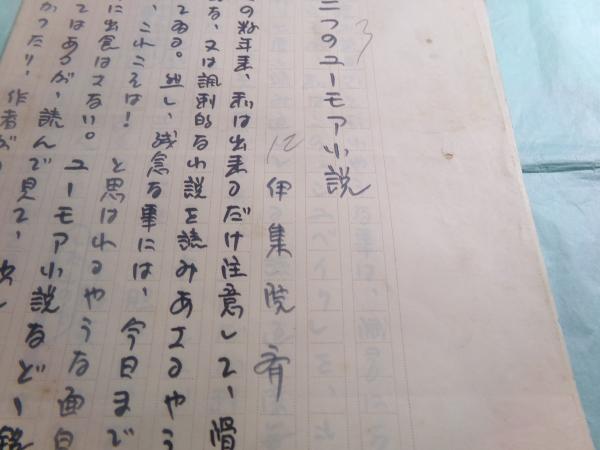 二つのユーモア小説
3
12
伊集院斉
の数年来、私は出来るだけ注意して、滑
な、又は諷刺的な小説を読みあさるやう
てゐる。然し、残念な事には、今日まで
、これこそは！と思はれるやうな面白
に出会はさない。ユーモア小説などゝ銘
てはあるが、読んで見て、
かつたり、作者が